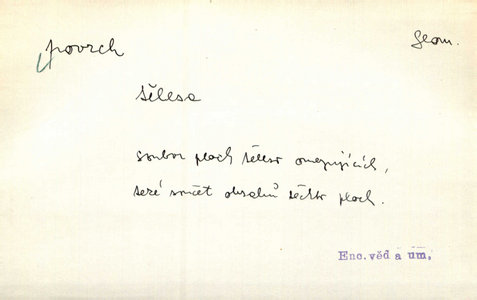 povrch
Geom.
tělesa
soubor ploch těleso omezujících,
též součet obsahů těchto ploch.
Enc. věd a um.